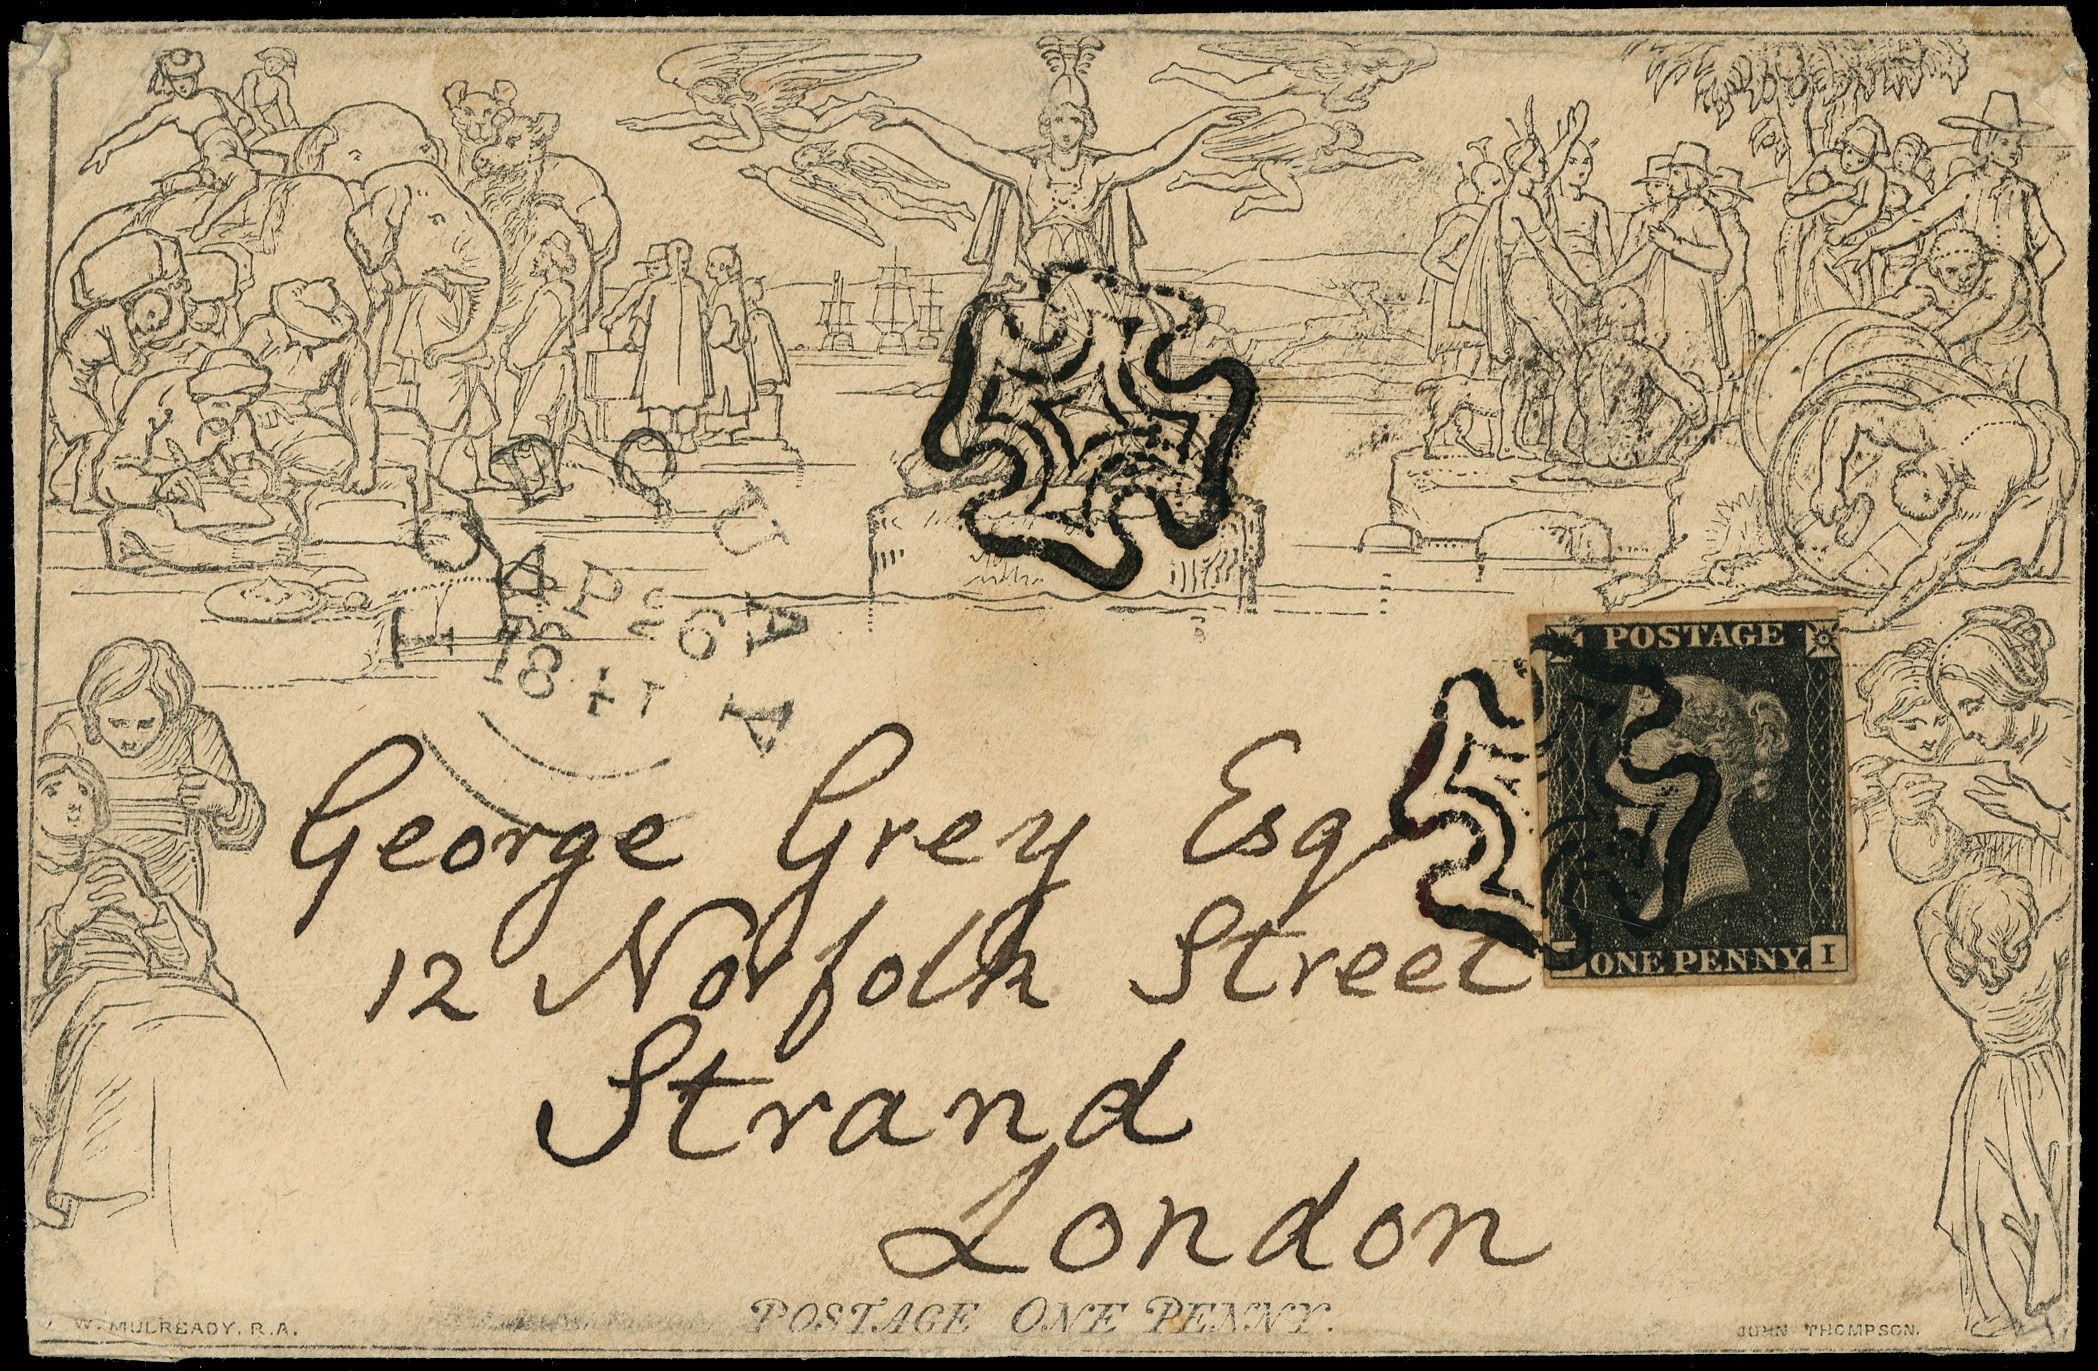 AP 26
1841
POSTAGE
ONE PENNY.
I
George Grey Esq
12 Norfolk Street
Strand
London
POSTAGE ONE PENNY.
W. MULREADY, R.A.
JOHN THOMPSON.